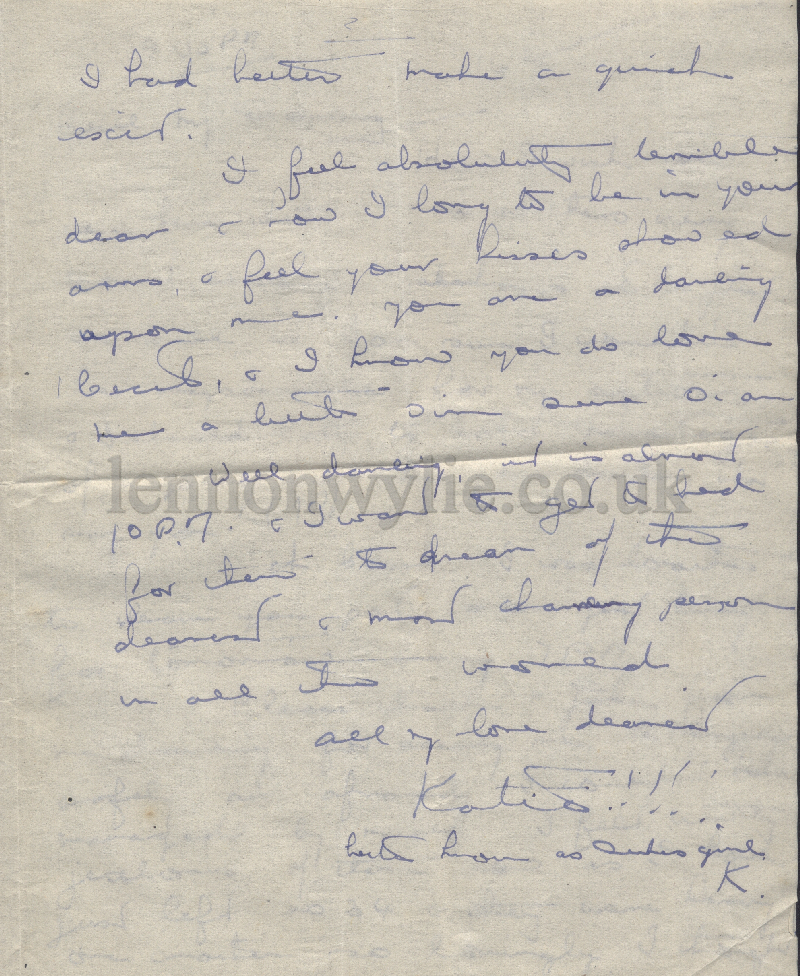 ?
I had better make a quick
exit.
I feel absolutely terrible
dear & how I long to be in your
arms, & feel your kisses showed
upon me. You are a darling
Cecil, & I know you do love
me a little
Well darling, it is almost
10 P.M. & I want to get to bed
for then to dream of the
dearest & most charming person
in all the world
all my love dearest
Katie!!!!
better known as girl
K.
lennonwylie.co.uk